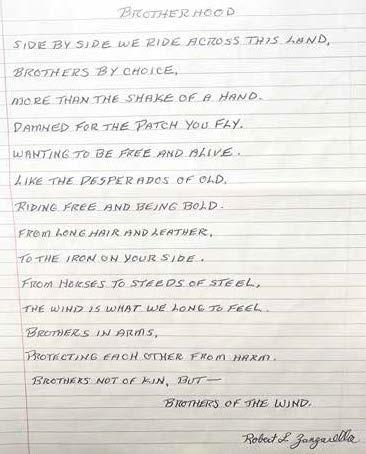 BROTHERHOOD
SIDE BY SIDE WE RIDE ACROSS THIS LAND,
BROTHERS BY CHOICE,
MORE THAN THE SHAKE OF A HAND.
DAMNED FOR THE PATCH YOU FLY.
WANTING TO BE FREE AND ALIVE.
LIKE THE DESPERADOS OF OLD,
RIDING FREE AND BEING BOLD.
FROM LONG HAIR AND LEATHER,
TO THE IRON ON YOUR SIDE.
FROM HORSES TO STEEDS OF STEEL,
THE WIND IS WHAT WE LONG TO FEEL.
BROTHERS IN ARMS,
PROTECTING EACH OTHER FROM HARM.
BROTHERS NOT OF KIN, BUT—
BROTHERS OF THE WIND.
Robert L. Zangarella